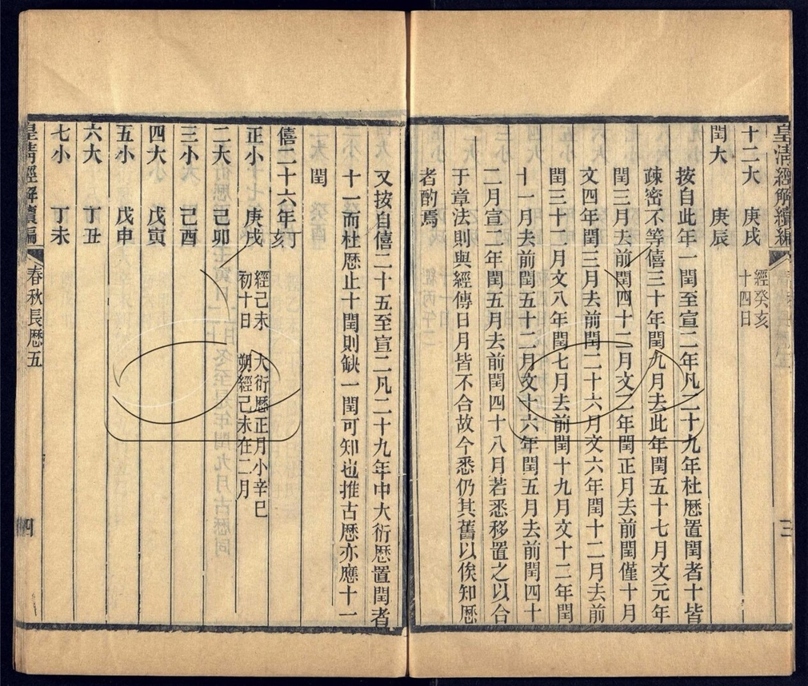 皇清經解續編
三
十二大 庚戌 經癸亥十四日
閏大 庚辰
按自此年一閏至宣二年凡二十九年杜厯置閏者十皆
疎密不等僖三十年閏九月去此年閏五十七月文元年
閏三月去前閏四十二月文二年閏正月去前閏僅十月
文四年閏三月去前閏二十六月文六年閏十二月去前
閏三十二月文八年閏七月去前閏十九月文十二年閏
十一月去前閏五十二月文十六年閏五月去前閏四十
二月宣二年閏五月去前閏四十八月若悉移置之以合
于章法則與經傳日月皆不合故今悉仍其舊以俟知厯
者酌焉
又按自僖二十五至宣二凡二十九年中大衍厯置閏者
十一而杜厯止十閏則缺一閏可知也推古厯亦應十一
閏
僖二十六年丁亥
正小 庚戌 經己未初十日 大衍厯正月小辛巳朔經己未在二月
二大 己卯
三小 己酉
四大 戊寅
五小 戊申
六大 丁丑
七小 丁未
皇清經解續編
春秋長厯五
四